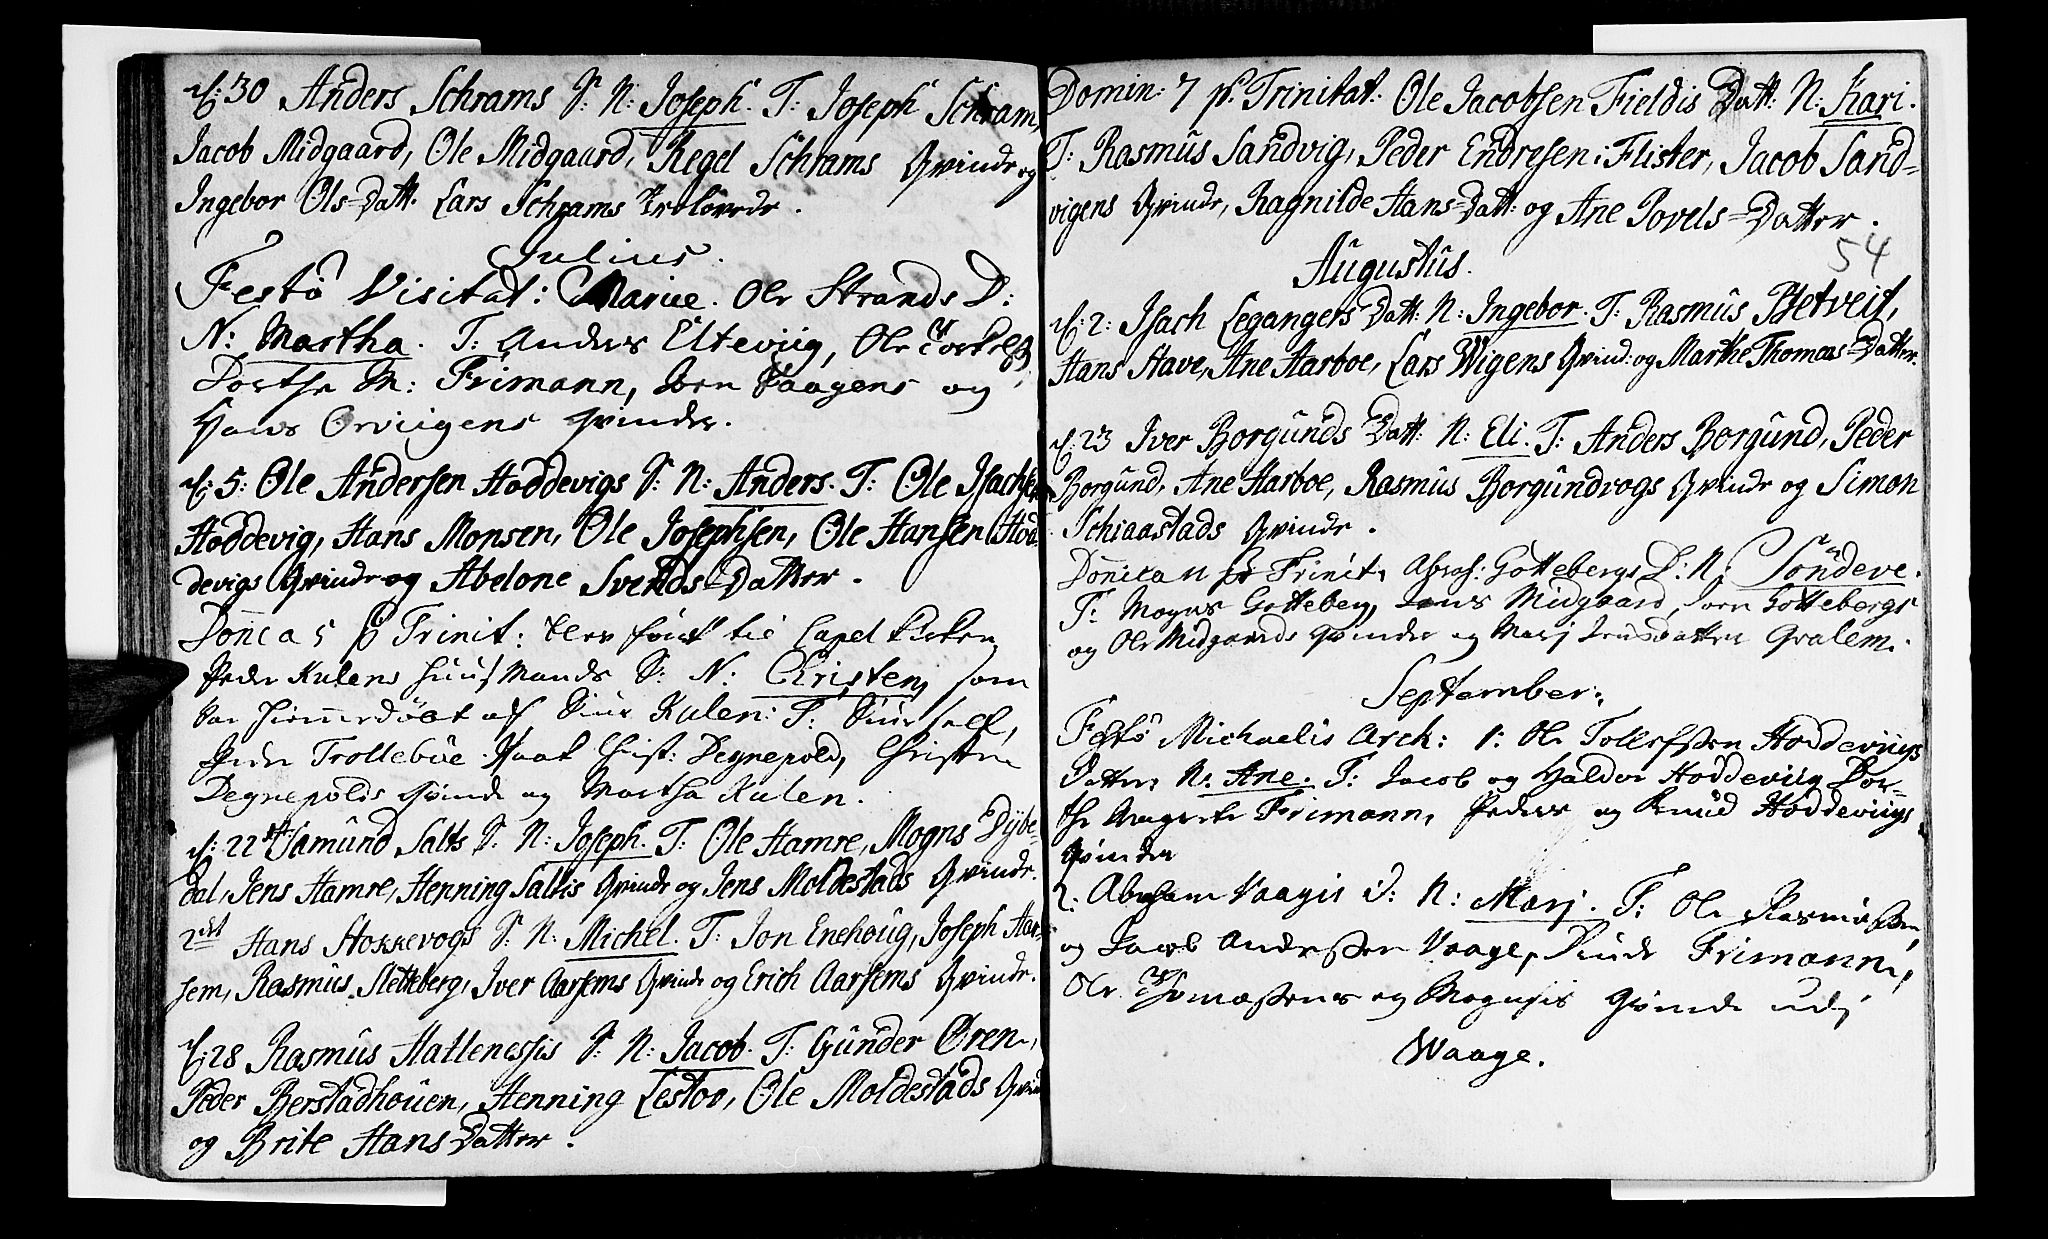 d: 30 Anders Schrams S: N: Joseph. T: Joseph Schram,
Jacob Midgaard, Ole Midgaard, Regel Schrams Qvinde og
Ingebor Ols=Datt: Lars Schrams Trolovede.
Julius.
Festo Visitat: Mariæ. Ole Strands D:
N: Martha. T: Anders Elteviig, Ole
Dorthe M: Frimann, Vaagens og
Hans Orviigens Qvinder.
d: 5: Ole Andersen Hoddevigs S: N: Anders. T: Ole Isachsen
Hoddevig, Hans Monsen, Ole Josephsen, Ole Hansen Hod-
devigs Qvinde og Abelone Svends=Datter.
Donica 5 p Trinit: blev til Capel
Peder Kulens Huusmands S: N: Christen, som
var hiemmedöbt af Kulen: T:
Peder Trolleböe. Christ: Degnepold, Christen
Degnepolds Qvinde og Martha Kulen.
d: 22 Amund Salts S: N: Joseph. T: Ole Hamre, Mogns Dybe-
dal, Jens Hamre, Henning Saltis Qvinde og Jens Moldestads Qvinde.
Hans Hokkevogs S: N: Michel. T: Jon Enehoug, Joseph Aar-
sem, Rasmus Sletteberg, Iver Aarsems Qvinde og Erich Aarsems Qvinde.
d: 28 Rasmus Hatlenessis S: N: Jacob. T: Gunder Ören,
Peder Berstadhouen, Henning Lestoe, Ole Moldestads Qvinde
og Brite Hans Datter.
Domin: 7 p. Trinitat: Ole Jacobsen Fieldis Datt: N: Kari.
T: Rasmus Sandvig, Peder Endresen: Flister, Jacob Sand=
vigens Qvinde, Ragnilde Hans=Datt: og Ane Povels=Datter.
54
Augustus.
d: 2: Isach Legangers Datt: N: Ingebor. T: Rasmus Bietveit,
Hans Have, Ane Aarboe, Lars Wigens Qvind: og Marthe Thomæs=Datter.
d: 23 Iver Borgunds Datt: N: Eli. T: Anders Borgund, Peder
Borgund, Ane Aarboe, Rasmus Borgundvogs Qvinde og Simon
Schiaastads Qvinde.
Donica 11 p Trinit. Abrah: Gottebergs D: N: Söndeve.
T: Mogns Gotteberg, Midgaard, Gottebergs
og Ole Midgaards Qvinder og Marj Jensdatter Qvalem.
September.
Festo Michaelis Arch: 1: Ole Tollefssen Hoddeviigs
Datter N: Ane. T: Jacob og Haldor Hoddeviig, Dor-
the Magrete Frimann, Peders og Knud Hoddeviigs
Qvinder
2: Abraham Vaagis D: N: Marj. T: Ole Rasmussen,
og Jacob Anderssen Vaage, Frimann,
Ole Thomæssens og Mognsis Qvinde udj
Waage.